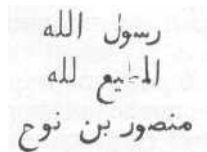 رسول الله
المطيع لله
منصور بن نوح